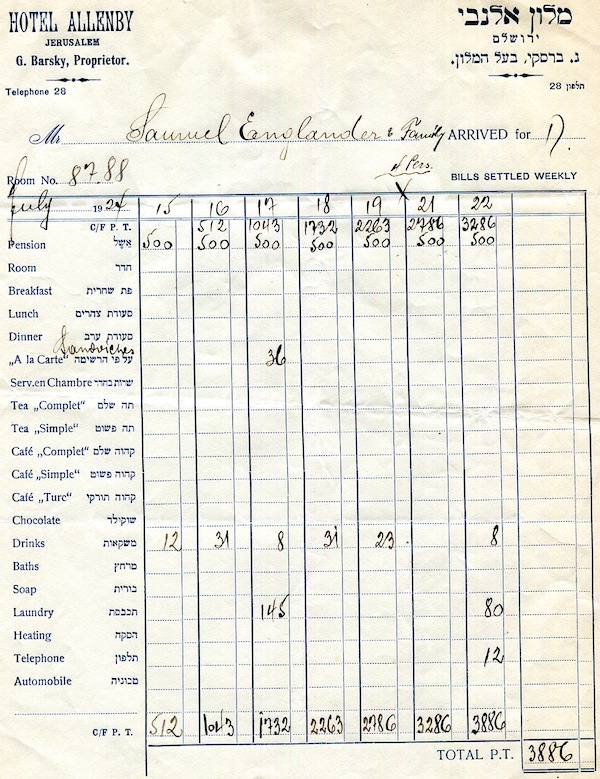 HOTEL ALLENBY
JERUSALEM
G. Barsky, Proprietor.
Telephone 28
מלון אלנבי
ירושלם
ג. ברסקי, בעל המלון.
תלפון 28
Mr Samuel Englander & Family ARRIVED for
Room No. 87.88
4 Pers.
BILLS SETTLED WEEKLY
July 1924 15 16 17 18 19 21 22
C/F P. T. 512 1043 1732 2263 2786 3286
Pension אש״ל 500 500 500 500 500 500 500
Room חדר
Breakfast פת שחרית
Lunch סעודת צהרים
Dinner סעודת ערב
Sandwiches
„A la Carte“ על פי הרשימה 36
Serv. en Chambre שרות בחדר
Tea „Complet“ תה שלם
Tea „Simple“ תה פשוט
Café „Complet“ קהוה שלם
Café „Simple“ קהוה פשוט
Café „Turc“ קהוה תורקי
Chocolate שוקולד
Drinks משקאות 12 31 8 31 23 . 8
Baths מרחץ
Soap בורית
Laundry תכבסת 145 80
Heating הסקה
Telephone תלפון 12
Automobile מכוניה
C/F P. T. 512 1043 1732 2263 2786 3286 3886
TOTAL P.T. 3886